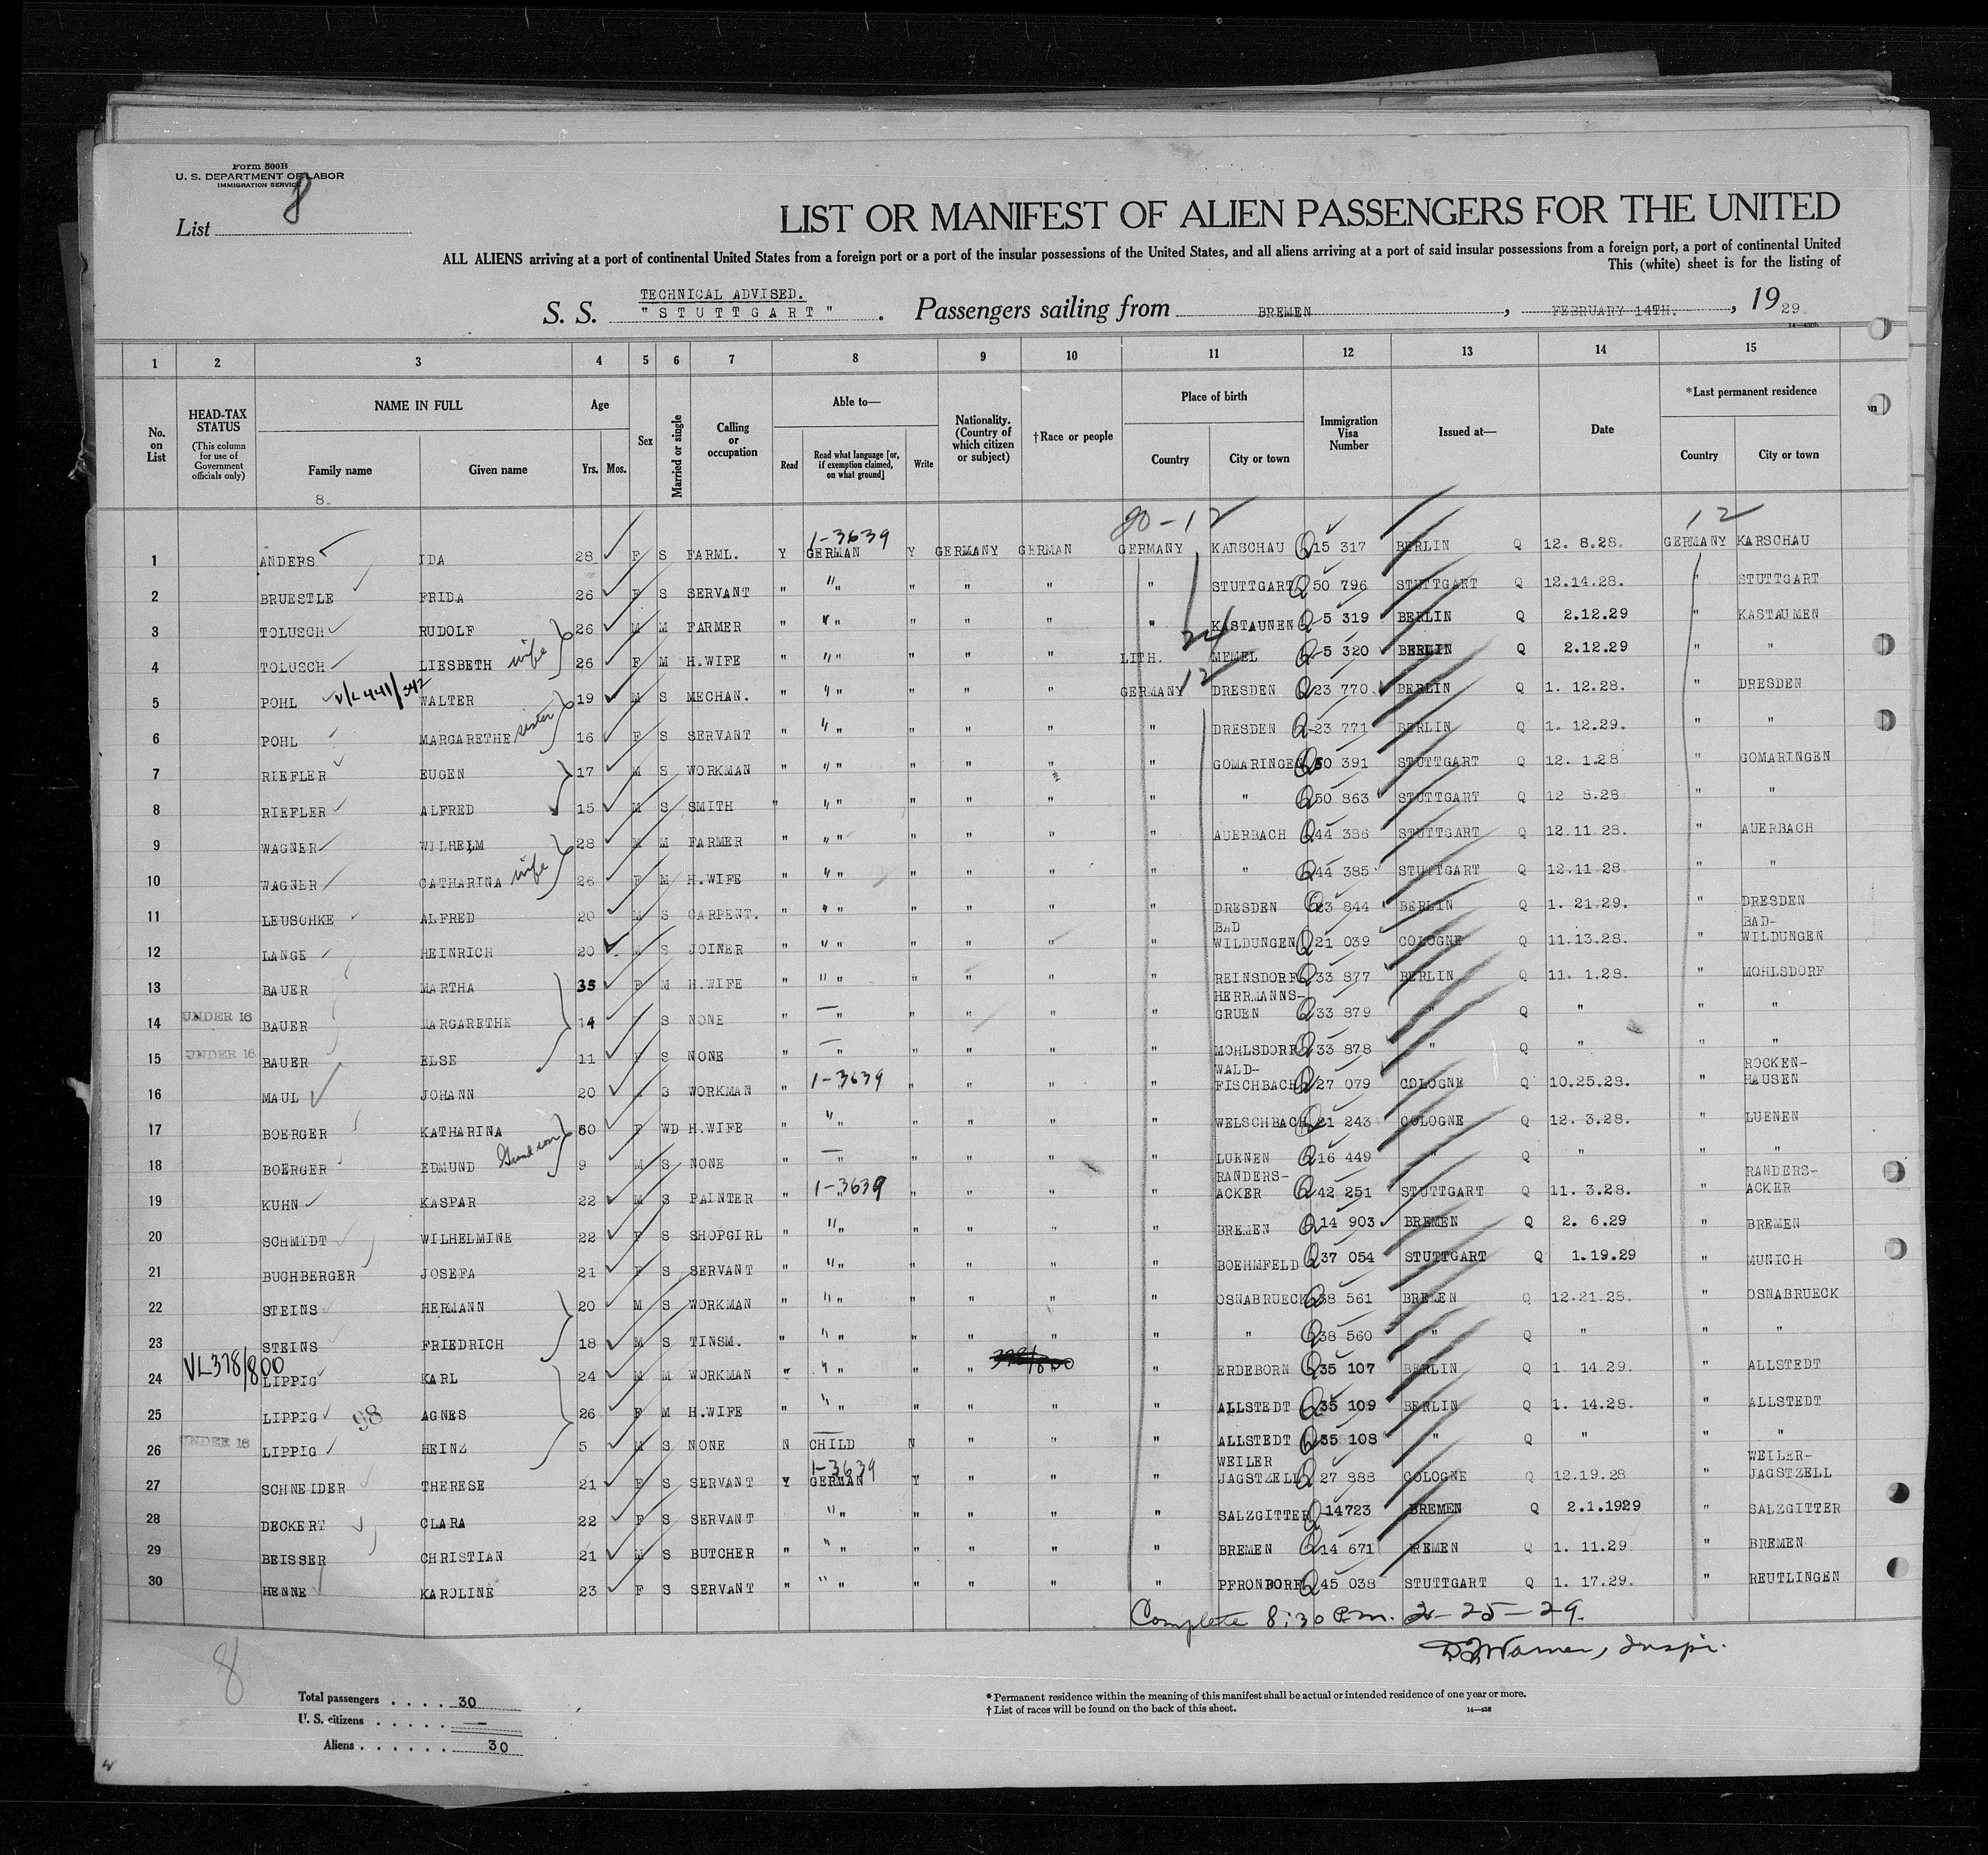 Form 500B
U. S. DEPARTMENT OF LABOR
IMMIGRATION SERVICE
List 8
LIST OR MANIFEST OF ALIEN PASSENGERS FOR THE UNITED
ALL ALIENS arriving at a port of continental United States from a foreign port or a port of the insular possessions of the United States, and all aliens arriving at a port of said insular possessions from a foreign port, a port of continental United
This (white) sheet is for the listing of
TECHNICAL ADVISED.
S. S. "STUTTGART". Passengers sailing from BREMEN, FEBRUARY 14TH., 19 29.
14—430b
1 2 3 4 5 6 7 8 9 10 11 12 13 14 15
No. on List
HEAD-TAX STATUS (This column for use of Government officials only)
NAME IN FULL Family name Given name
Age Yrs. Mos.
Sex
Married or single
Calling or occupation
Able to— Read Read what language [or, if exemption claimed, on what ground] Write
Nationality. (Country of which citizen or subject)
†Race or people
Place of birth Country City or town
Immigration Visa Number
Issued at—
Date
*Last permanent residence Country City or town
8.
20-12 12
1 ANDERS IDA 28 F S FARML. Y 1-3639 GERMAN Y GERMANY GERMAN GERMANY KARSCHAU Q 15 317 BERLIN Q 12. 8.28. GERMANY KARSCHAU
2 BRUESTLE FRIDA 26 F S SERVANT " " " " " " STUTTGART Q 50 796 STUTTGART Q 12.14.28. " STUTTGART
3 TOLUSCH RUDOLF 26 M M FARMER " " " " " " KASTAUNEN Q 5 319 BERLIN Q 2.12.29 " KASTAUMEN
24
4 TOLUSCH LIESBETH wife 26 F M H.WIFE " " " " " LITH. MEMEL Q 5 320 BERLIN Q 2.12.29 " "
12
5 POHL V/L 441/342 WALTER 19 M S MECHAN. " " " " " GERMANY DRESDEN Q 23 770 BERLIN Q 1. 12.28. " DRESDEN
6 POHL MARGARETHE sister 16 F S SERVANT " " " " " " DRESDEN Q 23 771 BERLIN Q 1. 12.29. " "
7 RIEFLER EUGEN 17 M S WORKMAN " " " " " " GOMARINGEN Q 50 391 STUTTGART Q 12. 1.28 " GOMARINGEN
8 RIEFLER ALFRED 15 M S SMITH " " " " " " " Q 50 863 STUTTGART Q 12 8.28 " "
9 WAGNER WILHELM 28 M M FARMER " " " " " " AUERBACH Q 44 386 STUTTGART Q 12.11 28. " AUERBACH
10 WAGNER CATHARINA wife 26 F M H.WIFE " " " " " " " Q 44 385 STUTTGART Q 12.11 28. " "
11 LEUSCHKE ALFRED 20 M S CARPENT. " " " " " " DRESDEN Q 23 844 BERLIN Q 1. 21.29. " DRESDEN
12 LANGE HEINRICH 20 M S JOINER " " " " " " BAD WILDUNGEN Q 21 039 COLOGNE Q 11.13.28. " BAD-WILDUNGEN
13 BAUER MARTHA 35 F M H.WIFE " " " " " " REINSDORF Q 33 877 BERLIN Q 11. 1.28. " MOHLSDORF
14 UNDER 16 BAUER MARGARETHE 14 S NONE " — " " " " " HERRMANNS-GRUEN Q 33 879 " Q " " "
15 UNDER 16 BAUER ELSE 11 F S NONE " — " " " " " MOHLSDORF Q 33 878 " Q " " "
16 MAUL JOHANN 20 S WORKMAN " 1-3639 " " " " WALD-FISCHBACH Q 27 079 COLOGNE Q 10.25.28. " ROCKEN-HAUSEN
17 BOERGER KATHARINA 60 F WD H.WIFE " " " " " " WELSCHBACH Q 21 243 COLOGNE Q 12. 3.28. " LUENEN
18 BOERGER EDMUND Grandson 9 M S NONE " — " " " " " LUENEN Q 16 449 " Q " " "
19 KUHN KASPAR 22 M S PAINTER " 1-3639 " " " " RANDERS-ACKER Q 42 251 STUTTGART Q 11. 3.28. " RANDERS-ACKER
20 SCHMIDT WILHELMINE 22 F S SHOPGIRL " " " " " " BREMEN Q 14 903 BREMEN Q 2. 6.29 " BREMEN
21 BUCHBERGER JOSEFA 21 F S SERVANT " " " " " " BOEHMFELD Q 37 054 STUTTGART Q 1.19.29 " MUNICH
22 STEINS HERMANN 20 M S WORKMAN " " " " " " OSNABRUECK Q 38 561 BREMEN Q 12.21.28. " OSNABRUECK
23 STEINS FRIEDRICH 18 M S TINSM. " " " " " " " Q 38 560 " Q " " "
24 VL378/800 LIPPIG KARL 24 M M WORKMAN " " " " " ERDEBORN Q 35 107 BERLIN Q 1. 14.29. " ALLSTEDT
25 LIPPIG 98 AGNES 26 F M H.WIFE " " " " " " ALLSTEDT Q 35 109 BERLIN Q 1. 14.28. " ALLSTEDT
26 UNDER 16 LIPPIG HEINZ 5 M S NONE N CHILD N " " " ALLSTEDT Q 35 108 " Q " " "
27 SCHNEIDER THERESE 21 F S SERVANT Y 1-3639 GERMAN Y " " " WEILER JAGSTZELL Q 27 888 COLOGNE Q 12.19.28 " WEILER-JAGSTZELL
28 DECKERT CLARA 22 F S SERVANT " " " " " SALZGITTER Q 14723 BREMEN Q 2.1.1929 " SALZGITTER
29 BEISSER CHRISTIAN 21 M S BUTCHER " " " " " " BREMEN Q 14 671 REMEN Q 1. 11.29 " BREMEN
30 HENNE KAROLINE 23 F S SERVANT " " " " " " PFRONDORF Q 45 038 STUTTGART Q 1. 17.29. " REUTLINGEN
Complete 8:30 P.m. 2-25-29.
Warner, Inspr.
8
Total passengers . . . . 30
U. S. citizens . . . . . —
Aliens . . . . . . 30
* Permanent residence within the meaning of this manifest shall be actual or intended residence of one year or more.
† List of races will be found on the back of this sheet.
14—436